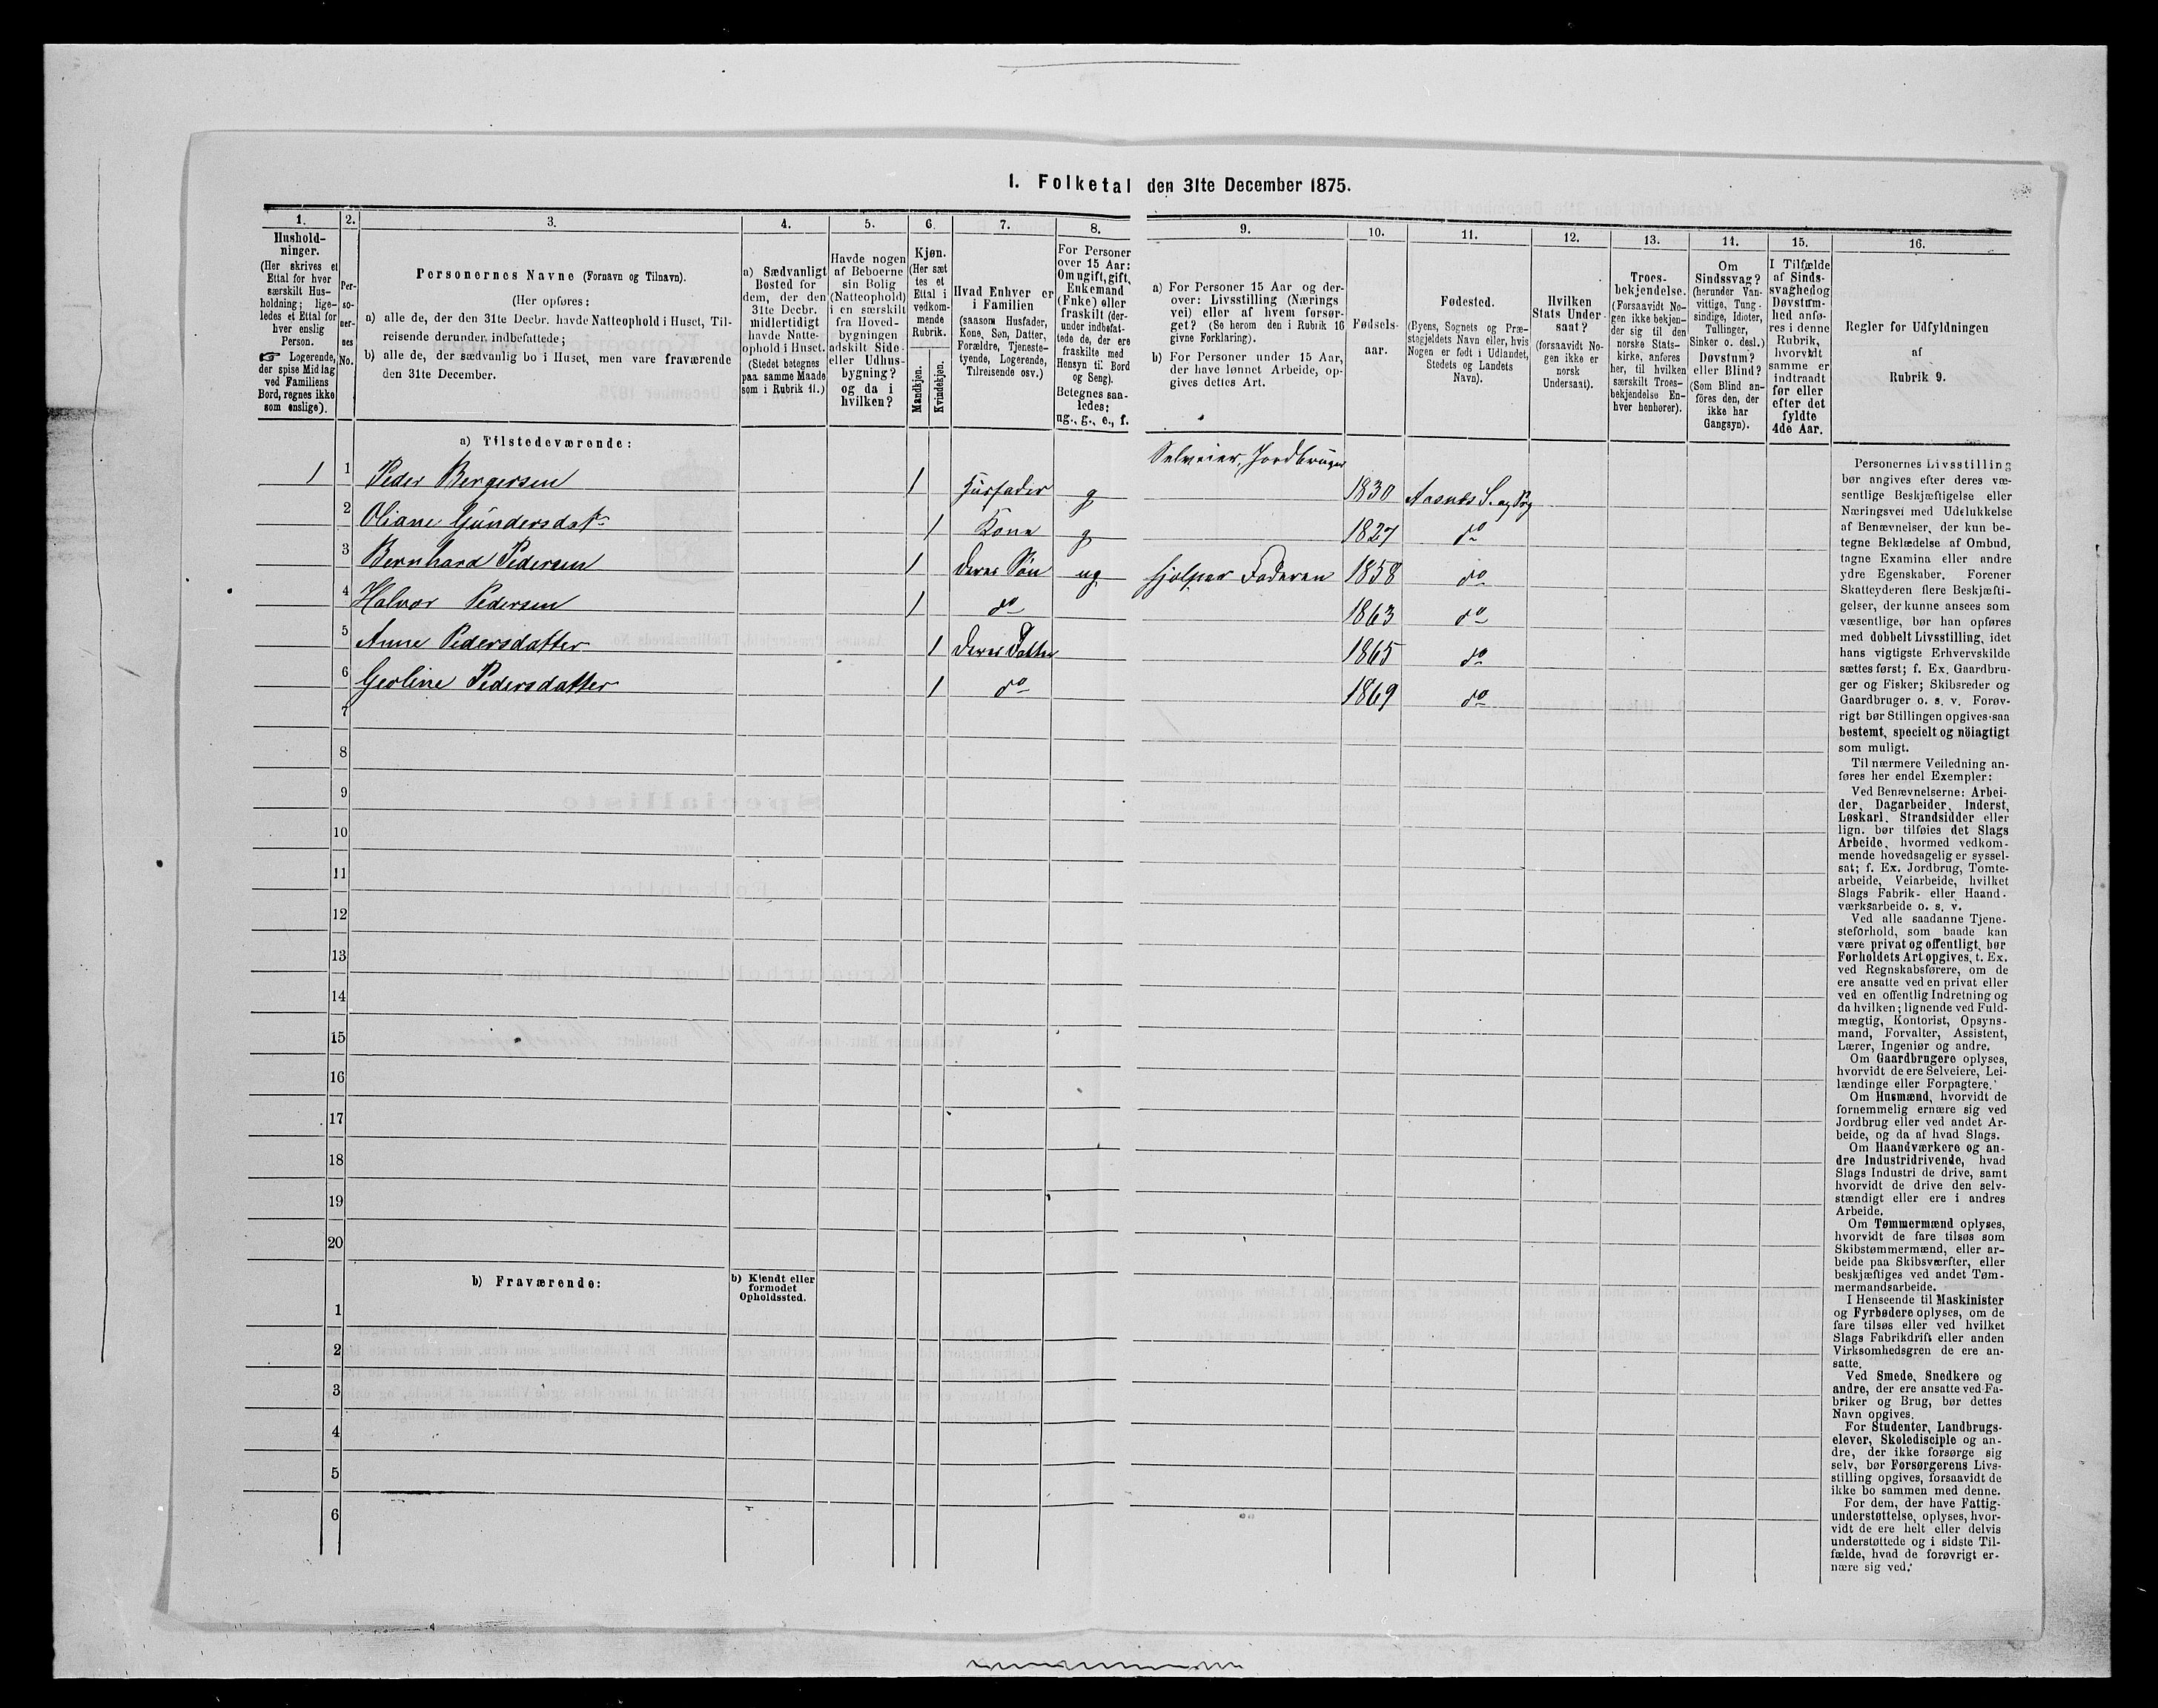 I. Folketal den 31te December 1875.
1.
Hushold-
ninger.
(Her skrives et
Ettal for hver
særskilt Hus-
holdning; lige-
ledes et Ettal for
hver enslig
Person.
☞ Logerende,
der spise Middag
ved Familiens
Bord, regnes ikke
som enslige).
2.
Per-
so-
ner-
nes
No.
3.
Personernes Navne (Fornavn og Tilnavn).
(Her opføres:
a) alle de, der den 31te Decbr. havde Natteophold i Huset, Til-
reisende derunder indbefattede;
b) alle de, der sædvanlig bo i Huset, men vare fraværende
den 31te December.
4.
a) Sædvanligt
Bosted for
dem, der den
31te Decbr.
midlertidigt
havde Natte-
ophold i Huset.
(Stedet betegnes
paa samme Maade
som i Rubrik 11.)
5.
Havde nogen
af Beboerne
sin Bolig
(Natteophold)
i en særskilt
fra Hoved-
bygningen
adskilt Side-
eller Udhus-
bygning?
og da i
hvilken?
6.
Kjøn.
(Her sæt
tes et
Ettal i
vedkom-
mende
Rubrik.
Mandkjøn.
Kvindekjøn.
7.
Hvad Enhver er
i Familien
(saasom Husfader,
Kone, Søn, Datter,
Forældre, Tjeneste-
tyende, Logerende,
Tilreisende osv.)
8.
For Personer
over 15 Aar:
Om ugift, gift,
Enkemand
(Enke) eller
fraskilt (der-
under indbefat-
tede de, der ere
fraskilte med
Hensyn til Bord
og Seng).
Betegnes saa-
ledes:
ug., g., e., f.
9.
a) For Personer 15 Aar og der-
over: Livsstilling (Nærings
vei) eller af hvem forsør-
get? (Se herom den i Rubrik 16
givne Forklaring).
b) For Personer under 15 Aar,
der have lønnet Arbeide, op-
gives dettes Art.
10.
Fødsels-
aar.
11.
Fødested.
(Byens, Sognets og Præ-
stegjeldets Navn eller, hvis
Nogen er født i Udlandet,
Stedets og Landets
Navn).
12.
Hvilken
Stats Under-
saat?
(forsaavidt No-
gen ikke er
norsk
Undersaat).
13.
Troes-
bekjendelse.
(Forsaavidt No-
gen ikke bekjen-
der sig til den
norske Stats-
kirke, anføres
her, til hvilken
særskilt Troes-
bekjendelse En-
hver henhører).
14.
Om
Sindssvag?
(herunder Van-
vittige, Tung-
sindige, Idioter,
Tullinger,
Sinker o. desl.)
Døvstum?
eller Blind?
(Som Blind an-
föres den, der
ikke har
Gangsyn).
15.
I Tilfælde
af Sinds-
svaghed og
Døvstum-
hed anfø-
res i denne
Rubrik,
hvorvidt
samme er
indtraadt
før eller
efter det
fyldte
4de Aar.
16.
Regler for Udfyldningen
af
Rubrik 9.
a) Tilstedeværende:
1 1 Peder Bergersen 1 Husfader g Selveier, Jordbruger 1830 Aasnes S. og Prg
2 Oliane Gundersdatr 1 Kone g 1827 do
3 Bernhard Pedersen 1 deres Søn ug hjelper Faderen 1858 do
4 Halvor Pedersen 1 do 1863 do
5 Anne Pedersdatter 1 deres Datter 1865 do
6 Geoline Pedersdatter 1 do 1869 do
7
8
9
10
11
12
13
14
15
16
17
18
19
20
b) Fraværende:
b) Kjendt eller
formodet
Opholdssted.
1
2
3
4
5
6
Personernes Livsstilling
bør angives efter deres væ-
sentlige Beskjæftigelse eller
Næringsvei med Udelukkelse
af Benævnelser, der kun be-
tegne Beklædelse af Ombud,
tagne Examina eller andre
ydre Egenskaber. Forener
Skatteyderen flere Beskjæfti-
gelser, der kunne ansees som
væsentlige, bør han opføres
med dobbelt Livsstilling, idet
hans vigtigste Erhvervskilde
sættes først; f. Ex. Gaardbru-
ger og Fisker; Skibsreder og
Gaardbruger o. s. v. Forøv-
rigt bør Stillingen opgives saa
bestemt, specielt og nöiagtigt
som muligt.
Til nærmere Veiledning an-
føres her endel Exempler:
Ved Benævnelserne: Arbei-
der, Dagarbeider, Inderst,
Løskarl, Strandsidder eller
lign. bør tilføies det Slags
Arbeide, hvormed vedkom-
mende hovedsagelig er syssel-
sat; f. Ex. Jordbrug, Tomte-
arbeide, Veiarbeide, hvilket
Slags Fabrik- eller Haand-
værksarbeide o. s. v.
Ved alle saadanne Tjene-
steforhold, som baade kan
være privat og offentligt, bør
Forholdets Art opgives, t. Ex.
ved Regnskabsførere, om de
ere ansatte ved en privat eller
ved en offentlig Indretning og
da hvilken; lignende ved Fuld-
mægtig, Kontorist, Opsyns-
mand, Forvalter, Assistent,
Lærer, Ingeniør og andre.
Om Gaardbrugere oplyses,
hvorvidt de ere Selveiere, Lei-
lændinge eller Forpagtere.
Om Husmænd, hvorvidt de
fornemmelig ernære sig ved
Jordbrug eller ved andet Ar-
beide, og da af hvad Slags.
Om Haandværkere og an-
dre Industridrivende, hvad
Slags Industri de drive, samt
hvorvidt de drive den selv-
stændigt eller ere i andres
Arbeide.
Om Tømmermænd oplyses,
hvorvidt de fare tilsøs som
Skibstømmermænd, eller ar-
beide paa Skibsværfter, eller
beskjæftiges ved andet Tøm-
mermandsarbeide.
I Henseende til Maskinister
og Fyrbødere oplyses, om de
fare tilsøs eller ved hvilket
Slags Fabrikdrift eller anden
Virksomhedsgren de ere an-
satte.
Ved Smede, Snedkere og
andre, der ere ansatte ved Fa-
briker og Brug, bør dettes
Navn opgives.
For Studenter, Landbrugs-
elever, Skoledisciple og an-
dre, der ikke forsørge sig
selv, bør Forsørgerens Livs-
stilling opgives, forsaavidt de
ikke bo sammen med denne.
For dem, der have Fattig-
understøttelse, oplyses, hvor-
vidt de ere helt eller delvis
understøttede og i sidste Til-
fælde, hvad de forøvrigt er-
nære sig ved.